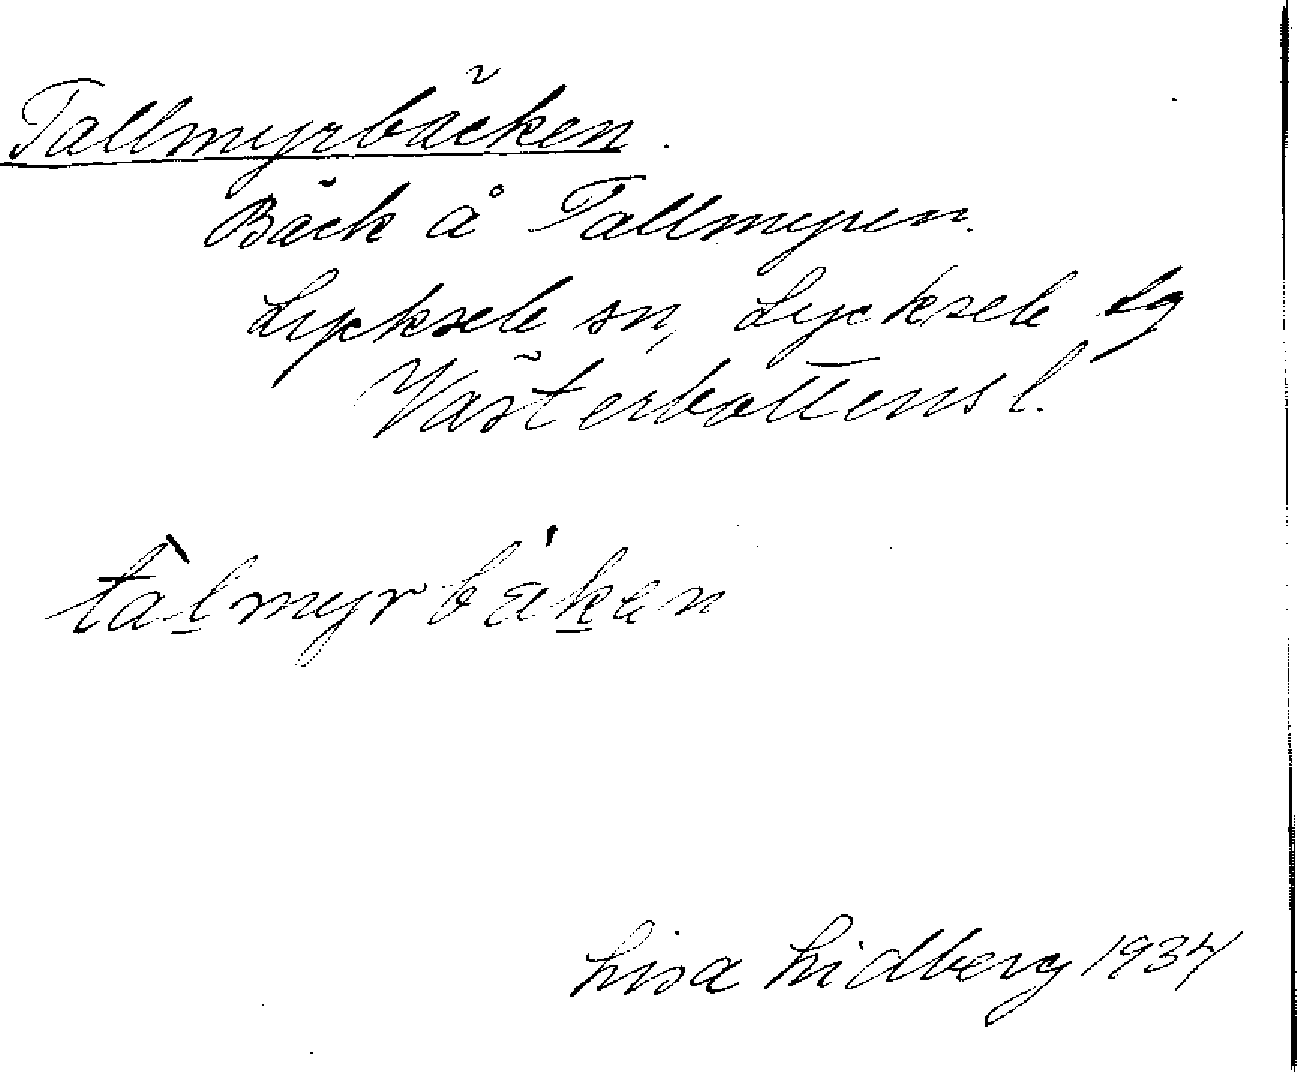 Tallmyrbäcken.
Bäck å Tallmyren.
Lycksele sn, Lycksele lg
Västerbottens l.
tàl̲myrbä́k̲en
Lisa Lidberg 1934